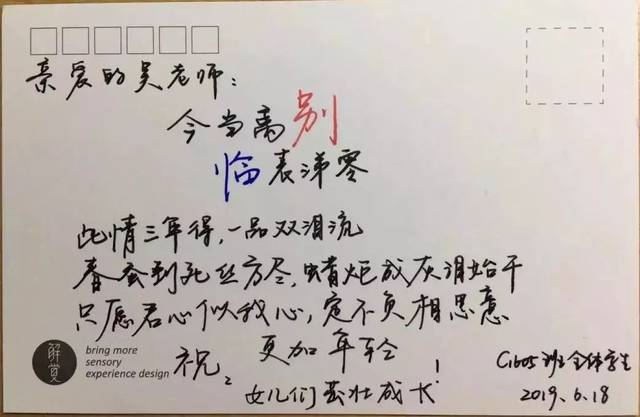 亲爱的吴老师：
今当离别
临表涕零
此情三年得，一品双泪流
春蚕到死丝方尽，蜡炬成灰泪始干
只愿君心似我心，定不负相思意
祝，更加年轻
女儿们茁壮成长！
解觉
bring more
sensory
experience design
C1605班全体学生
2019.6.18